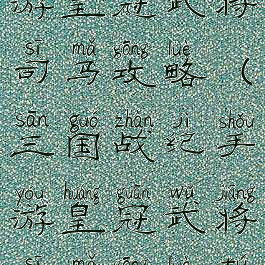 游皇冠武将
sī mǎ gōng lüè
司马攻略(
sān guó zhàn jì shǒu
三国战纪手
yóu huáng guān wǔ jiàng
游皇冠武将